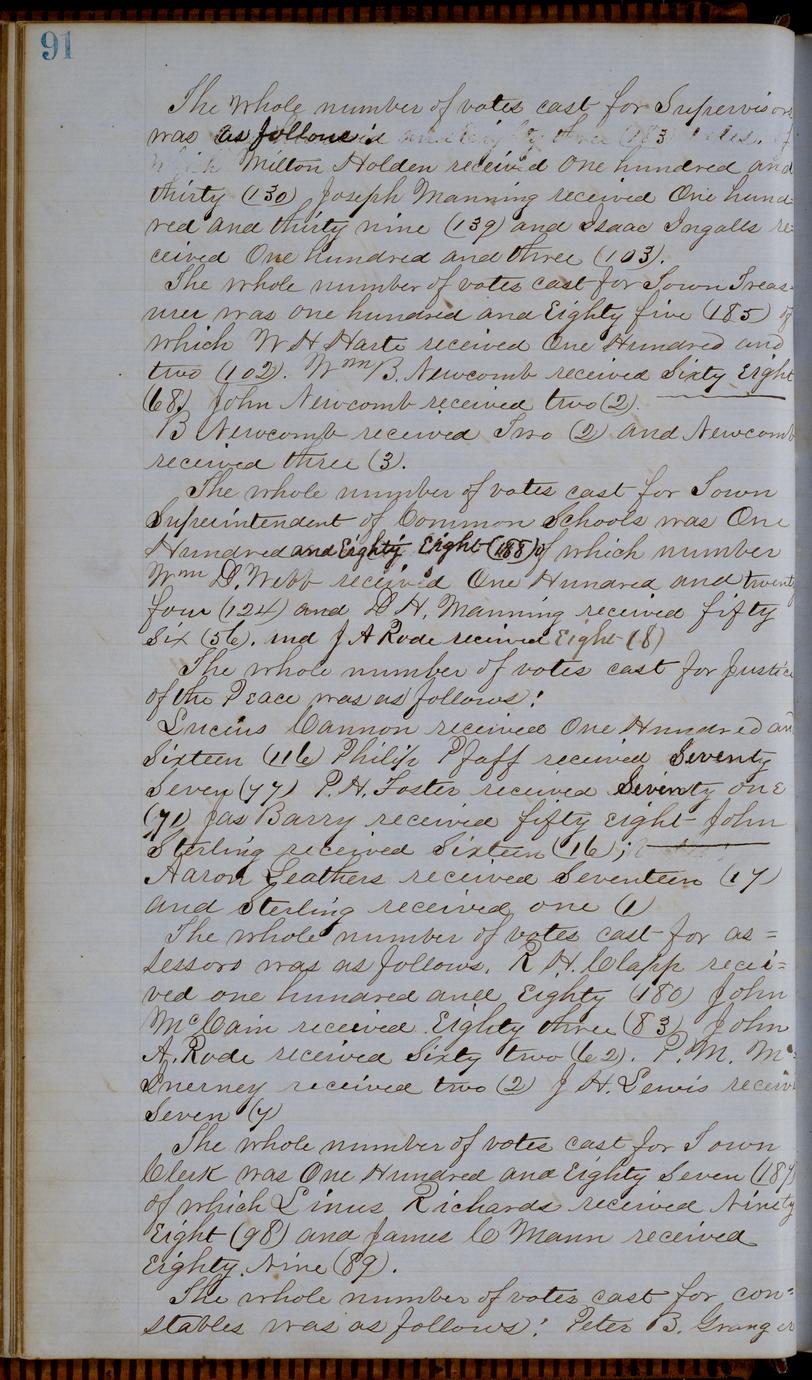 91
The whole number of votes cast for Supervisors
was as follows
Milton Holden received One hundred and
thirty (130) Joseph Manning received One hund-
red and thirty nine (139) and Isaac Ingalls re-
ceived One hundred and three (103).
The whole number of votes cast for Town Treas-
urer was one hundred and Eighty five (185) of
which W H Harte received One Hundred and
two (102). Wm B. Newcomb received Sixty Eight
(68) John Newcomb received two (2).
B Newcomb received Two (2) and Newcomb
received three (3).
The whole number of votes cast for Town
Superintendent of Common Schools was One
Hundred and Eighty Eight (188) of which number
Wm D. Webb received One Hundred and twenty
four (124) and D H. Manning received fifty
Six (56). and J A Rode received Eight (8)
The whole number of votes cast for Justice
of the Peace was as follows:
Lucius Cannon received One Hundred and
Sixteen (116) Philip Pfaff received Seventy
Seven (77) P. H. Foster received Seventy one
(71) Jas Barry received fifty eight John
Sterling received Sixteen (16);
Aaron Leathers received Seventeen (17)
and Sterling received one (1)
The whole number of votes cast for as=
sessors was as follows. R H. Clapp recei=
ved one hundred and Eighty (180) John
McCain received Eighty three (83) John
A. Rode received Sixty two (62). P. M. Mc=
Inerney received two (2) J H. Lewis receiv
Seven (7)
The whole number of votes cast for Town
Clerk was One Hundred and Eighty Seven (187)
of which Linus Richards received Ninety
Eight (98) and James C Mann received
Eighty Nine (89).
The whole number of votes cast for con=
stables was as follows: Peter B. Granger